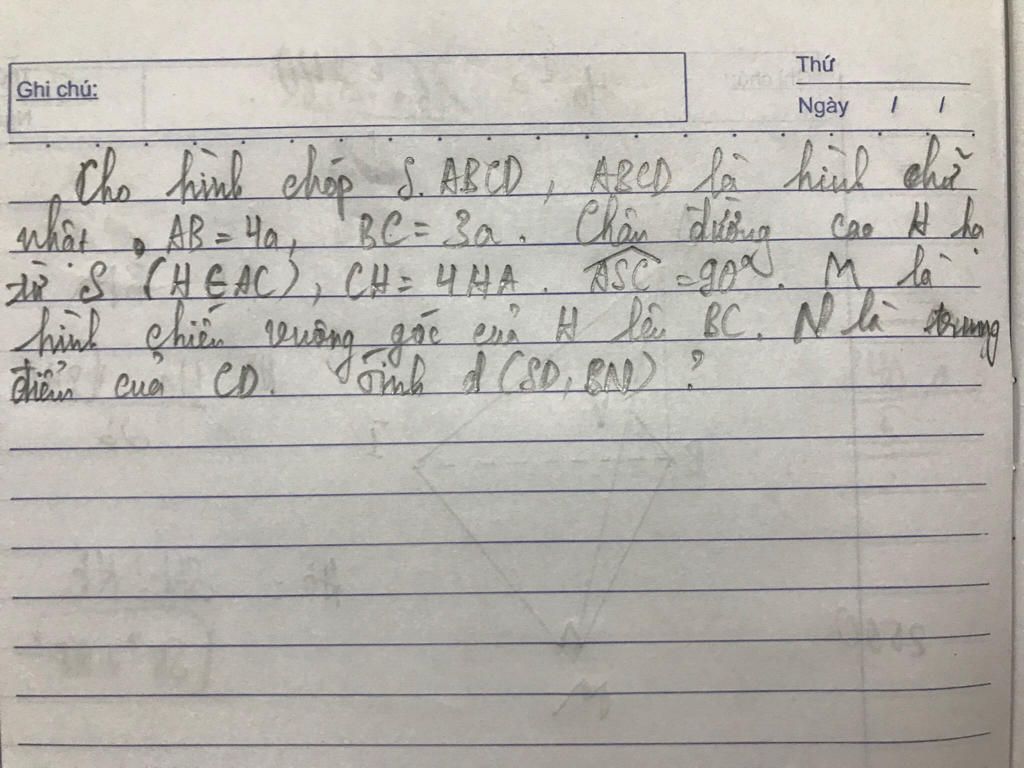 Thứ
Ghi chú:
Ngày / /
Cho hình chóp S.ABCD, ABCD là hình chữ
nhật, AB = 4a, BC = 3a. Chân đường cao H hạ
từ S (H ∈ AC), CH = 4HA. ASC = 90°. M là
hình chiếu vuông góc của H lên BC. N là trung
điểm của CD. Tính d(SD, BN)?